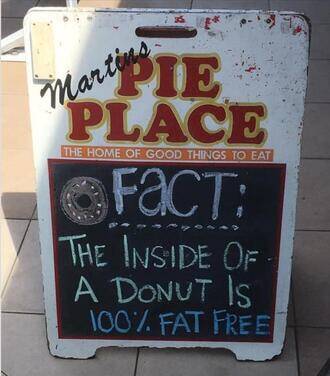 Martins
PIE
PLACE
THE HOME OF GOOD THINGS TO EAT
FACT:
THE INSIDE OF
A DONUT IS
100% FAT FREE